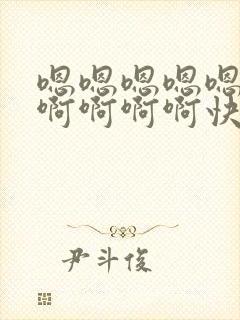 嗯嗯嗯嗯嗯
啊啊啊啊快
尹斗俊